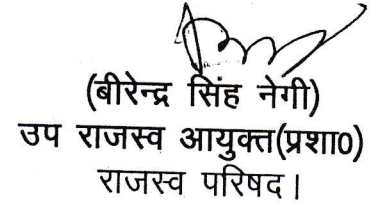 (बीरेन्द्र सिंह नेगी)
उप राजस्व आयुक्त(प्रशा0)
राजस्व परिषद।